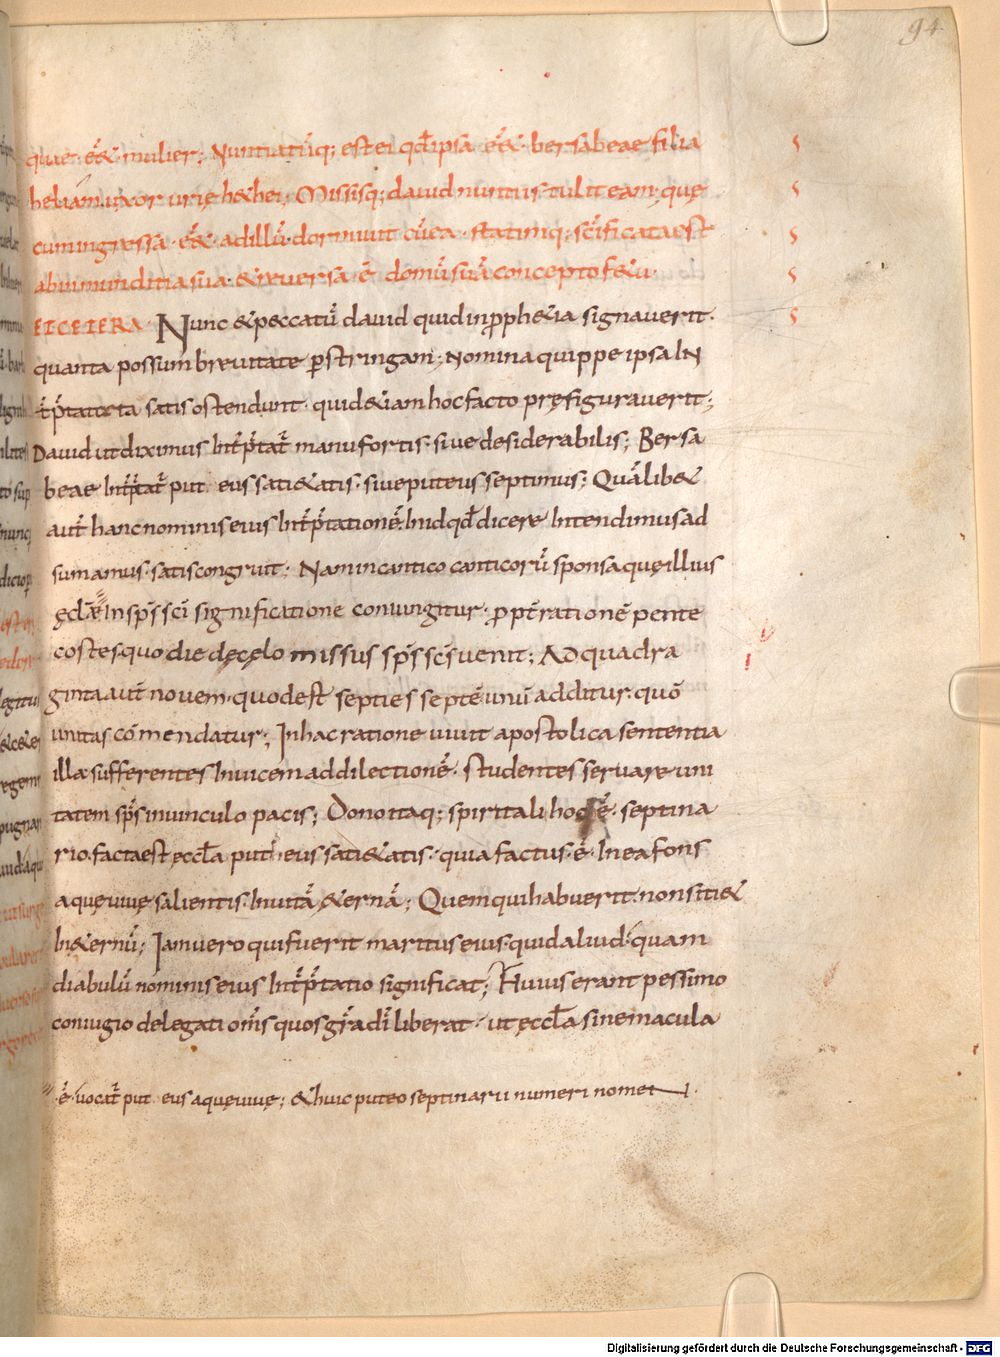 94
quae· eēt& mulier; Nuntiatūq; est ei qd̄ ipsa eēt& bersabeae filia
heliam uxor urię h&hei; Missisq; dauid nuntiis tulit eam; quę
cum ingressa eēt& ad illū· dormiuit cū ea· statimq; sc̄ificata est
ab inmunditia sua· & reuersa ē domū suā concepto f&u·
ETCETERA· Nunc & peccatū dauid quid in pph&ia signauerit·
quanta possum breuitate p̄stringam; Nomina quippe ipsa IN
t̄p̄tata satis ostendunt· quid &iam hoc facto pręfigurauerit;
Dauid ut diximus Int̄p̄tat̄ manu fortis· siue desiderabilis; Bersa
beae Int̄p̄tat̄ put eus sati&atis· siue puteus septimus; Quālib&
aut̄ hanc nominis eius Int̄p̄tationē· In id qd̄ dicere Intendimus ad
sumamus· satis congruit; Nam in cantico canticorū sponsa quę illius
ęcl̄a ē In sp̄s sc̄i significatione coniungitur· ppt̄ rationē pente
costes· quo die de cęlo missus sp̄s sc̄s uenit; AD quadra
ginta aut̄ nouem· quod est septies septē unū additur· quō
unitas cōmendatur; In hac ratione uiuit apostolica sententia
illa· sufferentes Inuicem ad dilectionē· studentes seruare uni
tatem sp̄s in uinculo pacis; Dono itaq; spiritali hoc ē· septina
rio· facta est ęccl̄a put eus sati&atis· quia factus· ē· In ea fons
aquę uiuę salientis· In uitā &ernā; Quem qui habuerit· non siti&
In &ernū; Iam uero qui fuerit maritus eius· quid aliud· quam
diabulū nominis eius Int̄p̄tatio significat; Huius erant pessimo
coniugio delegati om̄s quos gr̄a dī liberat· ut ęccl̄a sine macula
·ē· uocat̄ put eus aquę uiuę; & huic puteo septinarii numeri nomen·
Digitalisierung gefördert durch die Deutsche Forschungsgemeinschaft - DFG